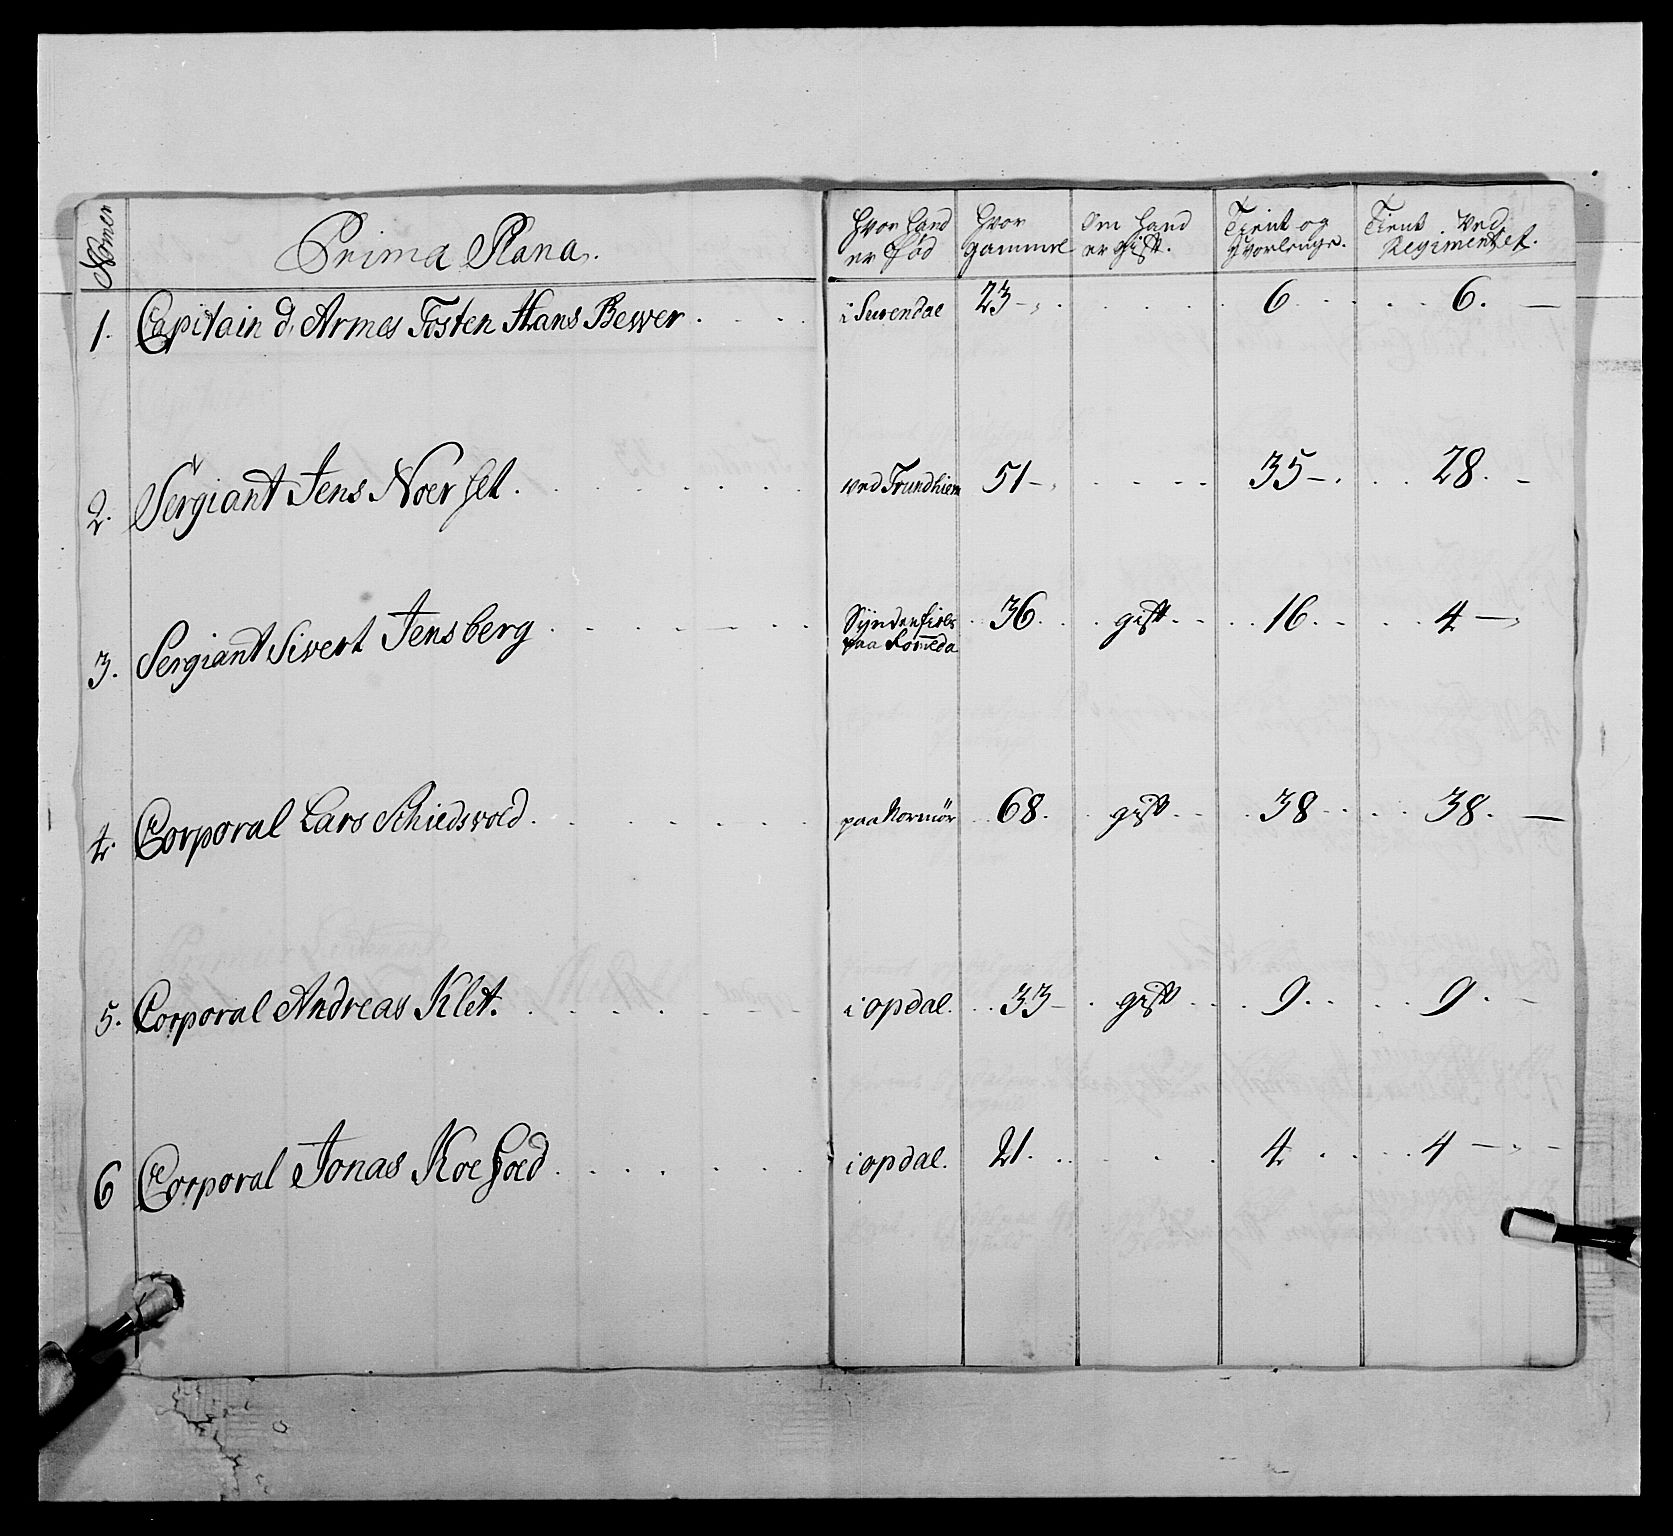 Nomer Prima Plana. Hvor hand Hvor Om hand Tient og Tient ved
er Fød gammel er gift. hvorlenge. Regimentet.
1. Capitain d'Armes Tosten Hans Bewer . . . . i Surendal 23 6 6.
2. Sergiant Jens Noerset . . . . ved Trundhiem 51 35 28.
3. Sergiant Sivert Jensberg . . . . Syndenfields 36. gift 16 4
paa
4. Corporal Lars Schiedsvold . . . . paa Normör 68. gift 38 38.
5. Corporal Andreas Klet. . . . . i opdal. 33 gift 9 9.
6 Corporal Jonas . . . . i opdal. 21. 4 4